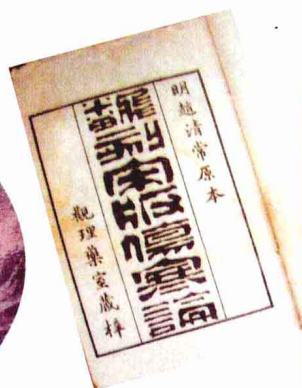 明趙清常原本
飜刻宋版傷寒論
觀理藥室藏梓